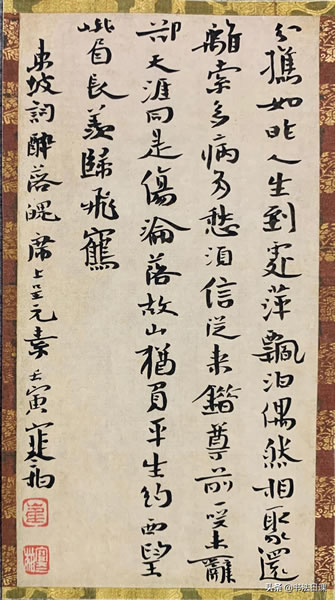 分攜如昨人生到處萍飄泊偶然相聚還
離索多病多愁須信從來錯尊前一笑未辭
卻天涯同是傷淪落故山猶負平生約西望
峨眉長羨歸飛鶴
東坡詞醉落魄席上呈元素 壬寅
头条 @书法日课